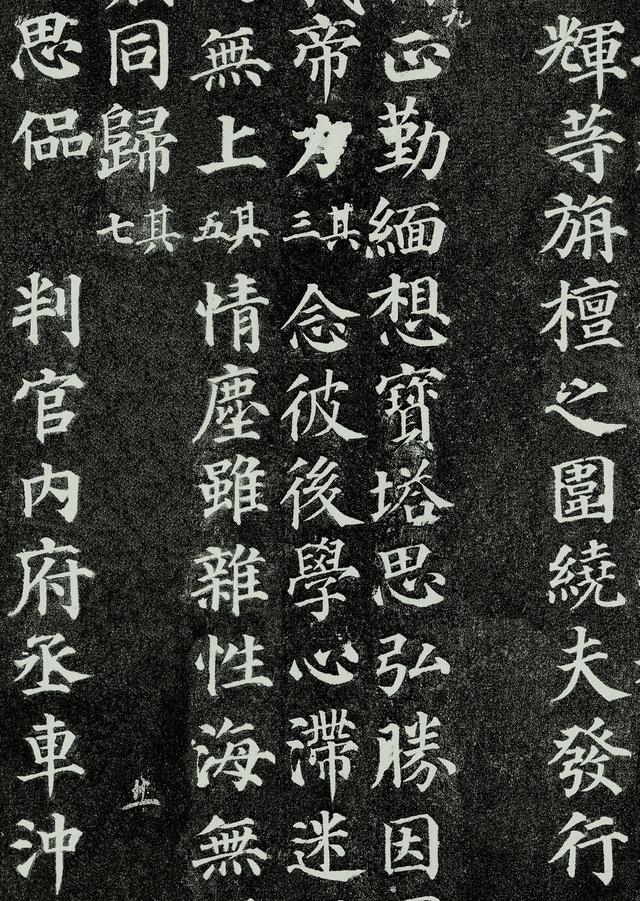 輝等旃檀之圍繞夫發行
九
正勤緬想寶塔思弘勝因
帝力其三念彼後學心滯迷
無上其五情塵雖雜性海無
同歸其七
思偘 判官内府丞車沖